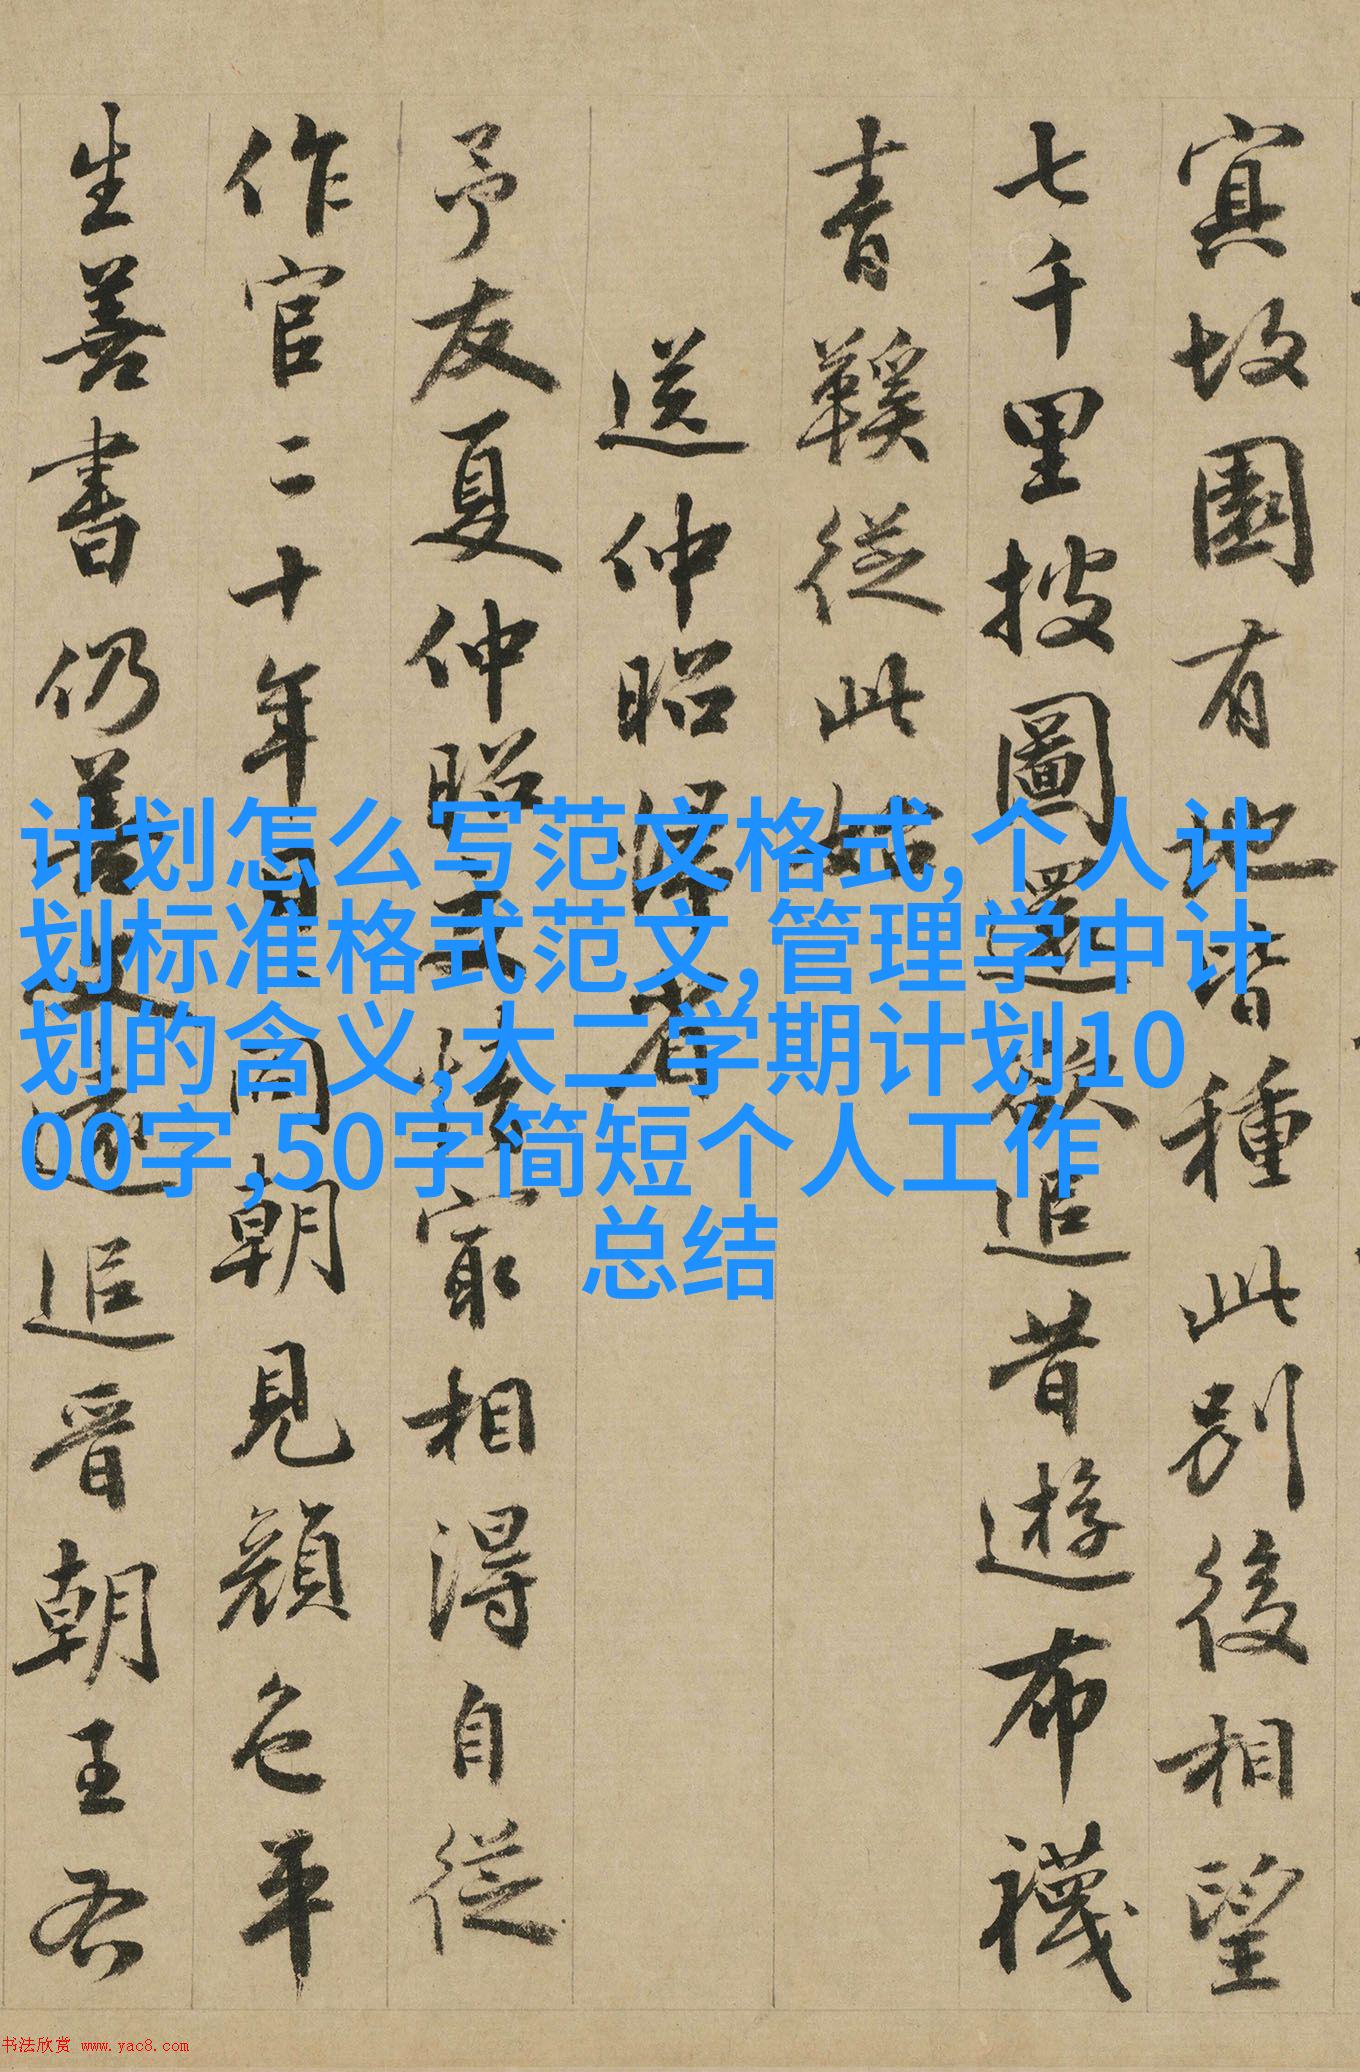 寘故園有地皆種此别後相望
七千里披圖還欲追昔遊布襪
青鞵從此始
送仲昭歸省
予友夏仲昭文律家相得自從
作官二十年日日同朝見顔色平
生善書仍善文遠追晉朝王右
计划怎么写范文格式,个人计
划标准格式范文,管理学中计
划的含义,大二学期计划10
00字,50字简短个人工作
总结
书法欣赏 www.yac8.com